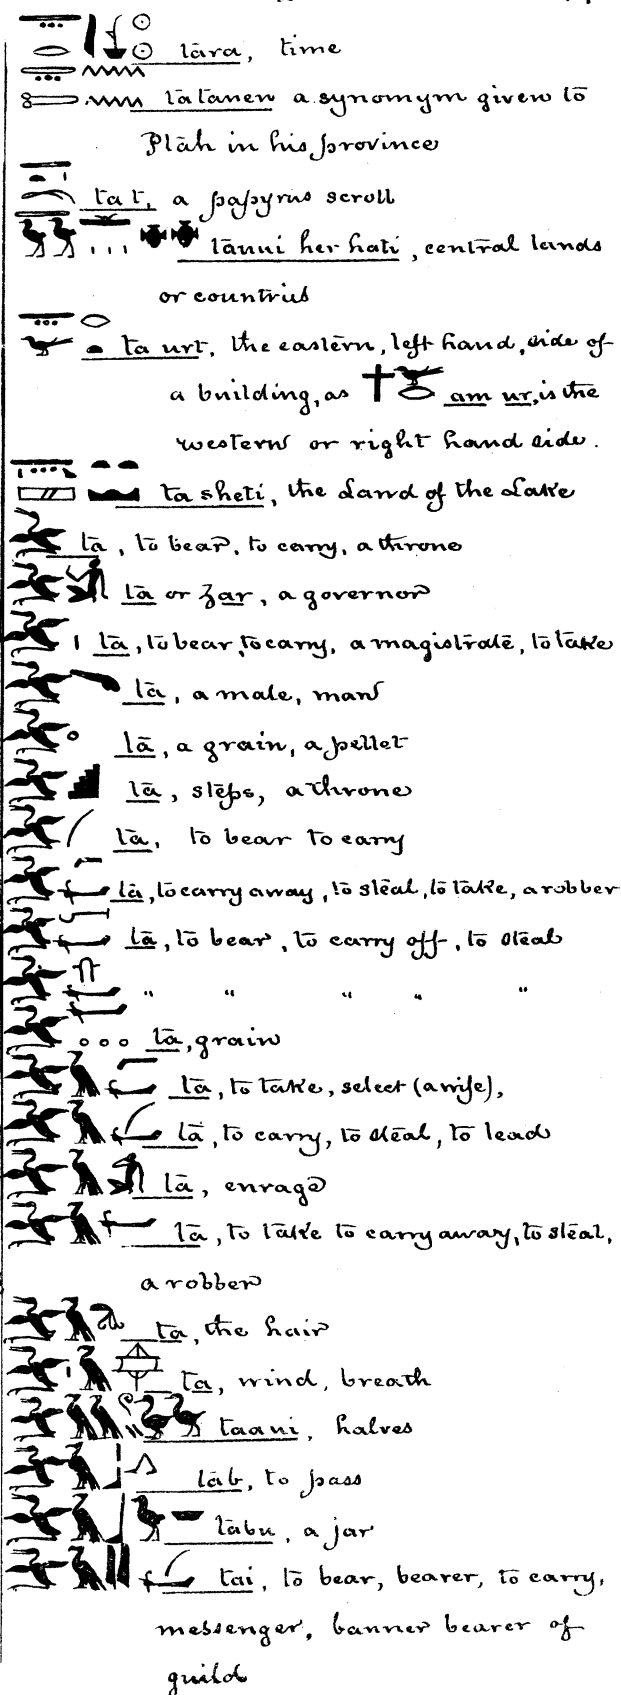 tāra, time
tatanen a synomym given to
Ptāh in his province
ta t, a papyrus scroll
tānui her hati, central lands
or countries
ta urt, the eastern, left hand, side of
a building, as am ur, is the
western or right hand side.
ta sheti, the Land of the Lake
tā, to bear, to carry, a throne
tā or Zar, a governor
tā, to bear, to carry, a magistrate, to take
tā, a male, man
tā, a grain, a pellet
tā, steps, a throne
tā, to bear to carry
tā, to carry away, to steal, to take, a robber
tā, to bear, to carry off, to steal
" " " " "
tā, grain
tā, to take, select (a wife),
tā, to carry, to steal, to lead
tā, enrage
tā, to take to carry away, to steal,
a robber
ta, the hair
ta, wind, breath
taaui, halves
tāb, to pass
tābu, a jar
tai, to bear, bearer, to carry,
messenger, banner bearer of
guild